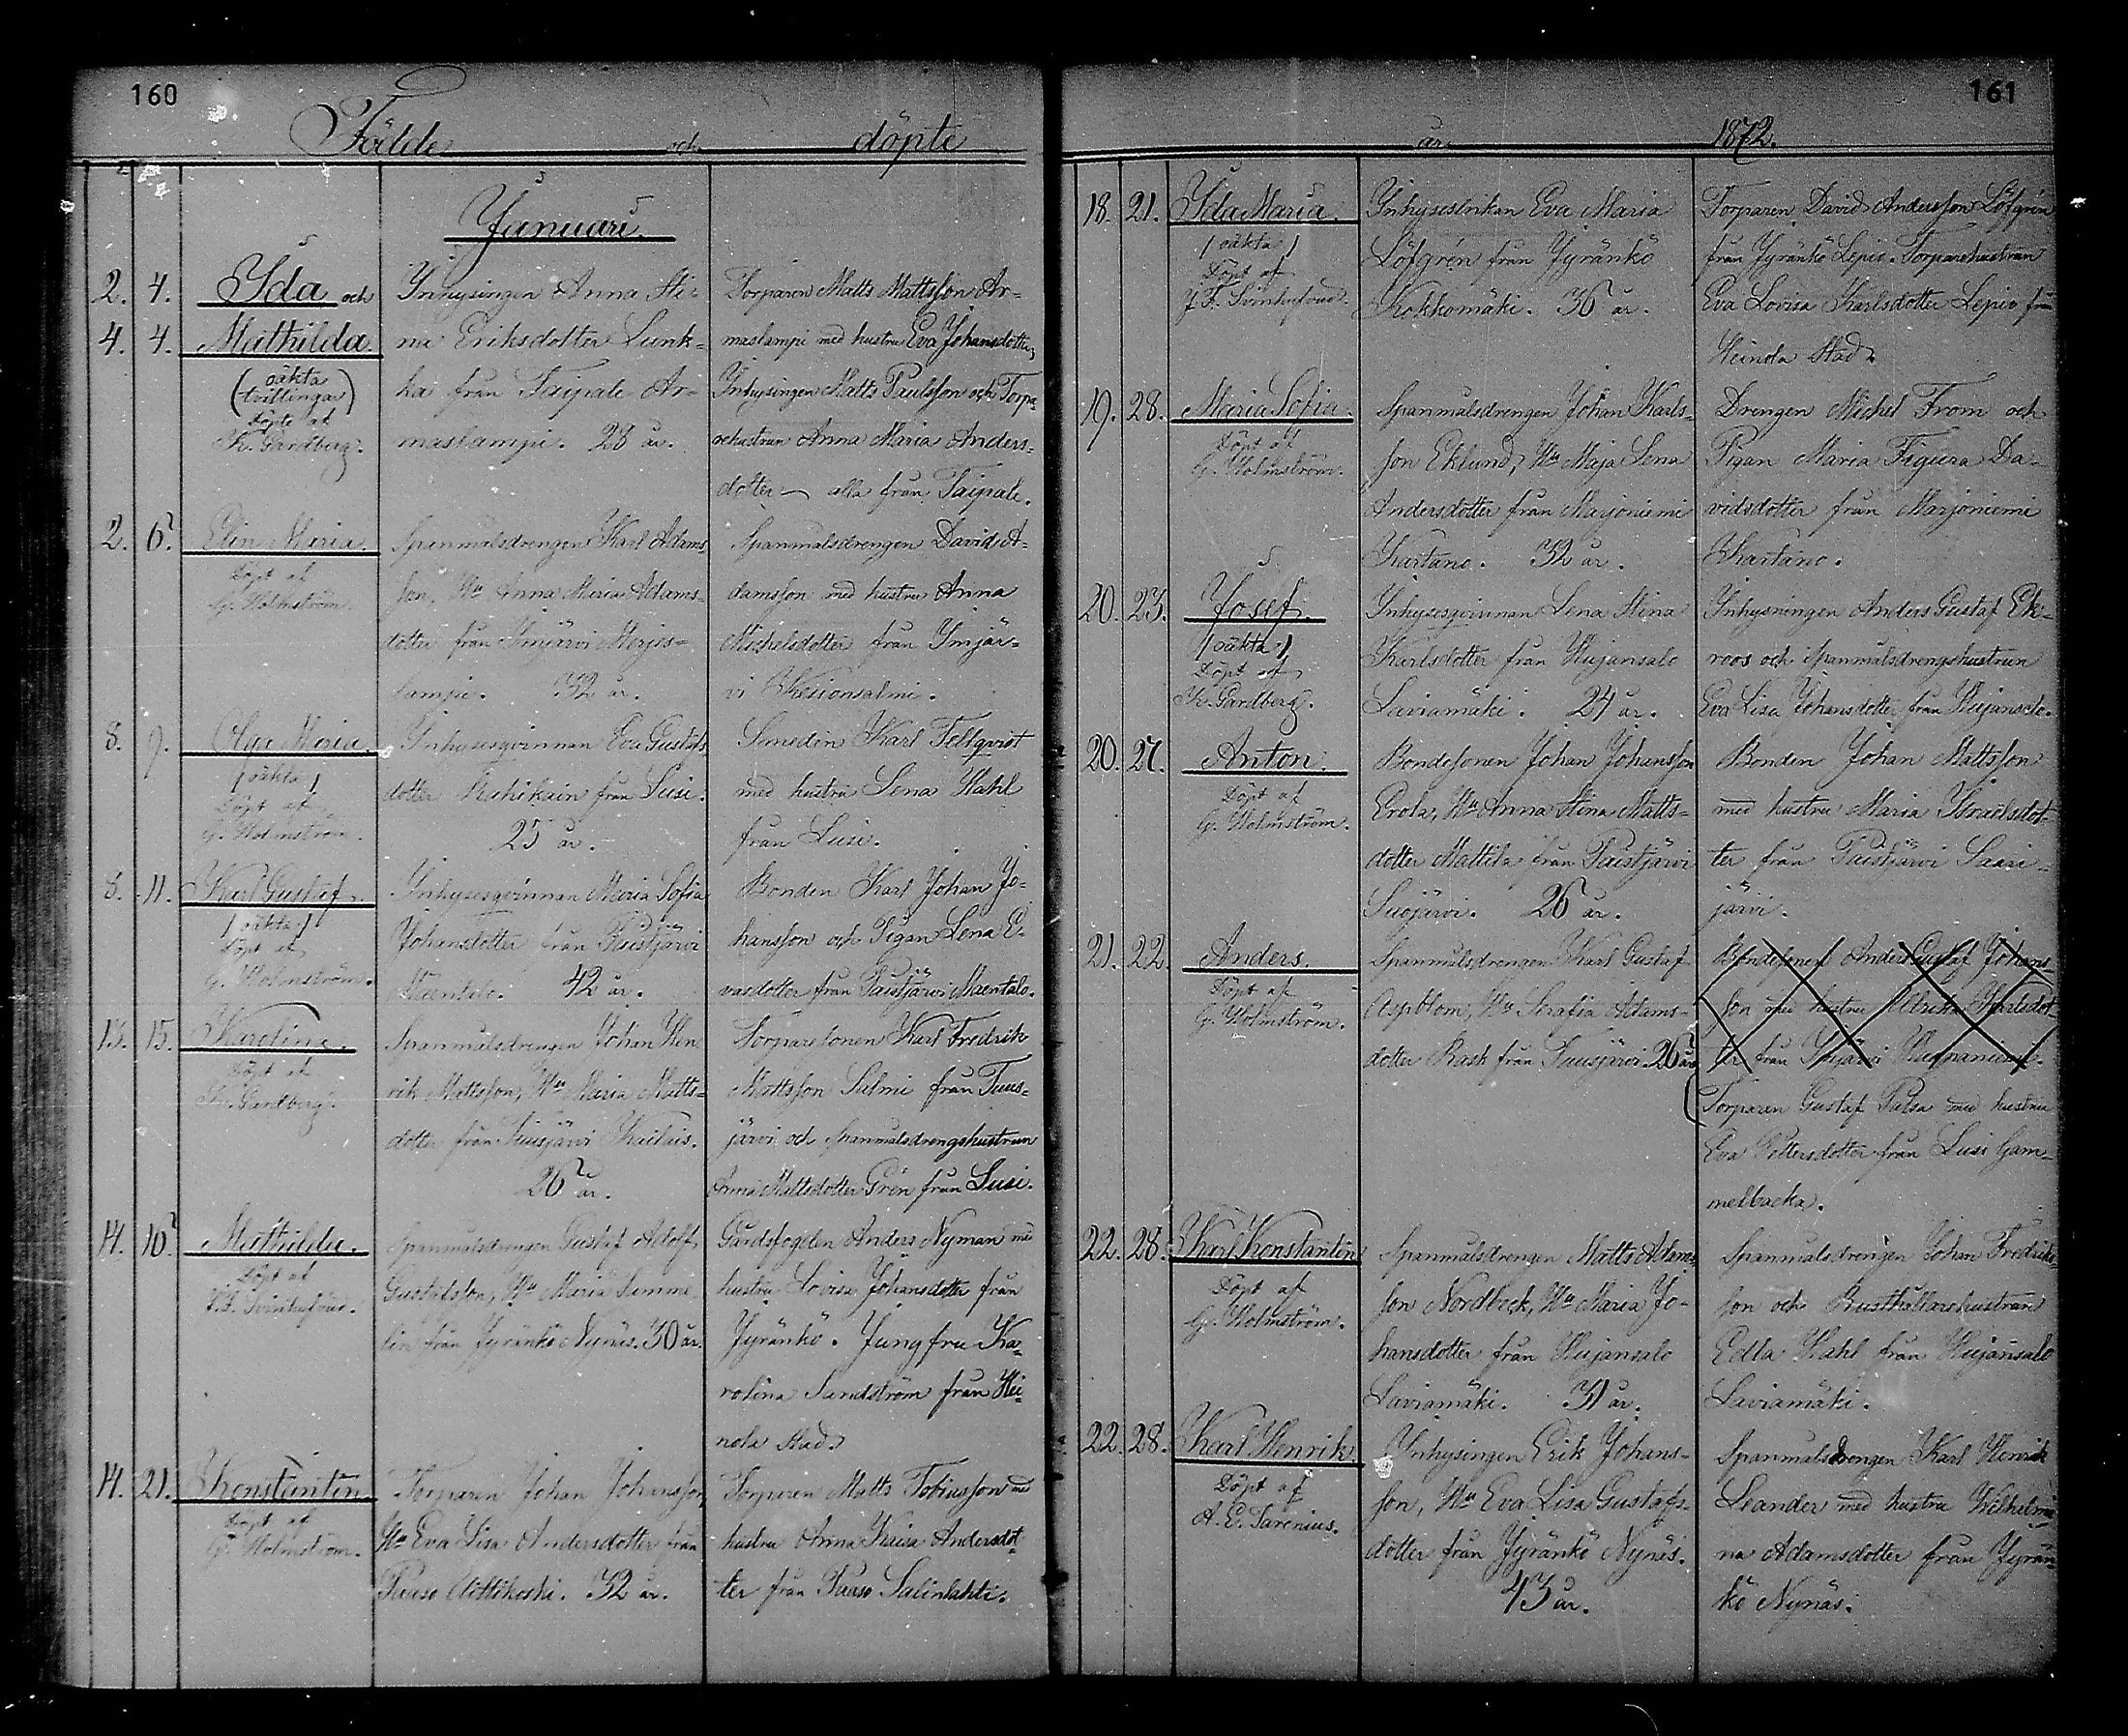 160
Födde och döpte
Januari.
2. 4. Ida och
4. 4. Mathilda.
(oäkta
tvillingar)
Döpte af
K. Gardberg.
Inhysingen Anna Sti-
na Eriksdotter Lunk-
ka från Taipale Ar-
maslampi. 28 år.
Torparen Matts Mattsson Ar-
maslampi med hustru Eva Johansdotter,
Inhysingen Matts Paulsson och Torpa-
rehustrun Anna Maria Anders-
dotter — alla från Taipale.
2. 6. Elin Maria.
Döpt af
G. Holmström.
Spanmålsdrengen Karl Adams-
son, Hu Anna Maria Adams-
dotter från Imjärvi
lampi. 32 år.
Spanmålsdrengen David A-
damsson med hustru Anna
Michelsdotter från Imjär-
vi Kesionsalmi.
8. 9. Olga Maria.
/oäkta/
Döpt af
G. Holmström.
Inhysesqvinnan Eva Gustafs
dotter från Lusi.
25 år.
Smeden Karl Fellqvist
med hustru Lena Stahl
från Lusi.
8. 11. Karl Gustaf.
/oäkta/
Döpt af
G. Holmström.
Inhysesqvinnan Maria Sofia
Johansdotter från Paistjärvi
Maentalo. 42 år.
Bonden Karl Johan Jo-
hansson och Pigan Lena E-
vasdotter från Paistjärvi Maentalo.
13. 15. Karolina.
Döpt af
K. Gardberg.
Spanmålsdrengen Johan Hen
rik Mattsson, Hu Maria Matts-
dotter från Tuusjärvi
26 år.
Torparesonen Karl Fredrik
Mattsson Salmi från Tuus-
järvi och Spanmålsdrengshustrun
Anna Mattsdotter Grön från Lusi.
14. 16. Mathilda.
Döpt af
J. F. Svinhufvud.
Spanmålsdrengen Gustaf Adolf
Gustafsson, Hu Maria Semme
lin från Jyränkö Nynäs. 30 år.
Gårdsfogden Anders Nyman med
hustru Lovisa Johansdotter från
Jyränkö. Jungfru Ka-
rolina Sandström från Hei-
nola stad.
14. 21. Konstantin
Döpt af
G. Holmström.
Torparen Johan Johansson,
Hu Eva Lisa Andersdotter från
Paaso Aittikoski. 32 år.
Torparen Matts Tobiasson med
hustru Anna Kaisa Andersdot-
ter från Paaso Salinlahti.
161
år 1872.
18. 21. Ida Maria.
/oäkta/
Döpt af
J. F. Svinhufvud.
Inhyseslnkan Eva Maria
Löfgrén från Jyränkö
Kokkomäki. 36 år.
Torparen David Andersson Löfgrén
från Jyränkö Lepis. Torparehustrun
Eva Lovisa Karlsdotter Lepis från
Heinola stad.
19. 28. Maria Sofia.
Döpt af
G. Holmström.
Spanmålsdrengen Johan Karls-
son Eklund, Hu Maja Lena
Andersdotter från Marjoniemi
Kartano. 32 år.
Drengen Michel From och
Pigan Maria Figura Da-
vidsdotter från Marjoniemi
Kartano.
20. 23. Josef.
/oäkta/
Döpt af
K. Gardberg.
Inhysesqvinnan Lena Stina
Karlsdotter från Hujansalo
Laviamäki. 24 år.
Inhysningen Anders Gustaf Ek-
roos och Spanmålsdrengshustrun
Eva Lisa Johansdotter från Hujansalo.
20. 27. Anton.
Döpt af
G. Holmström.
Bondesonen Johan Johansson
Erola, Hu Anna Stina Matts-
dotter Mattila från Paistjärvi
Suojärvi. 26 år.
Bonden Johan Mattsson
med hustru Maria Israelsdot-
ter från Paistjärvi Saari-
järvi.
21. 22. Anders.
Döpt af
G. Holmström.
Spanmålsdrengen Karl Gustaf
Aspblom, Hu Serafia Adams-
dotter Rask från Tuusjärvi. 26 år
Bondesonen Anders Gustaf Johans-
son med hustru Ulrika Karlsdot-
ter från Imjärvi
Torparen Gustaf Palsa med hustru
Eva Pettersdotter från Lusi Gam-
melbacka.
22. 28. Karl Konstantin
Döpt af
G. Holmström.
Spanmålsdrengen Matts Adams-
son Nordbeck, Hu Maria Jo-
hansdotter från Hujansalo
Laviamäki. 31 år.
Spanmålsdrengen Johan Fredriks-
son och Rusthållarehustrun
Edla Stahl från Hujansalo
Laviamäki.
22. 28. Karl Henrik.
Döpt af
A. E. Savenius.
Inhysingen Erik Johans-
son, Hu Eva Lisa Gustafs-
dotter från Jyränkö Nynäs.
43 år.
Spanmålsdrengen Karl Henrik
Leander med hustru Wilhelmi-
na Adamsdotter från Jyrän-
kö Nynäs.